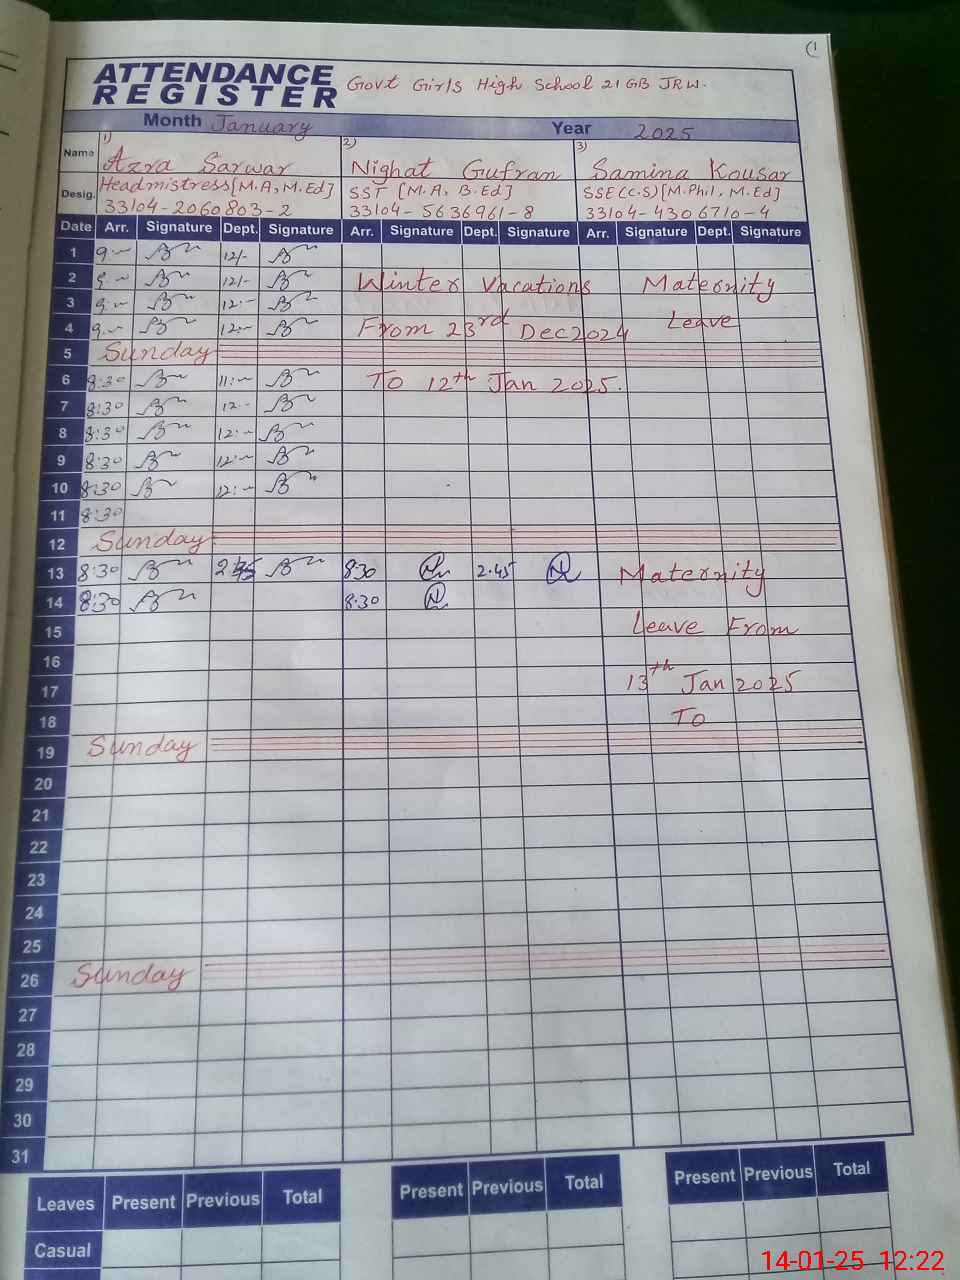 ATTENDANCE
REGISTER
Govt Girls High School 21 GB JRW.
Month January Year 2025
Name 1) Azra Sarwar 2) Nighat Gufran 3) Samina Kousar
Desig. Headmistress [M.A, M.Ed] SST [M.A, B.Ed] SSE(C.S) [M.Phil, M.Ed]
33104-2060803-2 33104-5636961-8 33104-4306710-4
Date Arr. Signature Dept. Signature Arr. Signature Dept. Signature Arr. Signature Dept. Signature
1 9:- 12/-
2 9:- 12/- Winter Vacations Maternity
3 9:- 12:-
4 9:- 12:- From 23rd Dec 2024 Leave
5 Sunday
6 8:30 11:- To 12th Jan 2025.
7 8:30 12:-
8 8:30 12:-
9 8:30 12:-
10 8:30 12:-
11 8:30
12 Sunday
13 8:30 8:30 2.45 Maternity
14 8:30 8.30
15 Leave From
16
17 13th Jan 2025
18 To
19 Sunday
20
21
22
23
24
25
26 Sunday
27
28
29
30
31
Leaves Present Previous Total Present Previous Total Present Previous Total
Casual
14-01-25 12:22